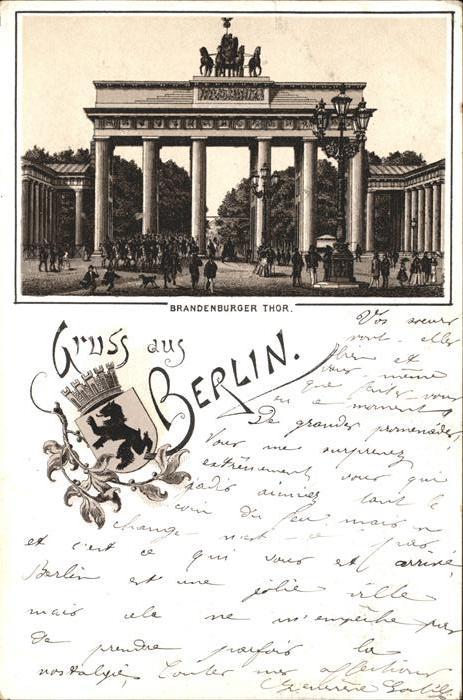 BRANDENBURGER THOR.
Gruss aus
BERLIN.
Vos soeurs
vont-elles
bien et
vous-même
que faites-vous
en ce moment
De grandes promenades,
Vous me surprenez
extrêmement, vous qui
jadis aimiez tant le
coin du feu mais on
change n'est-ce pas
et c'est ce qui vous est arrivé,
Berlin est une jolie ville
mais ela ne m'empêche pas
de prendre parfois la
nostalgie, Toutes mes affections